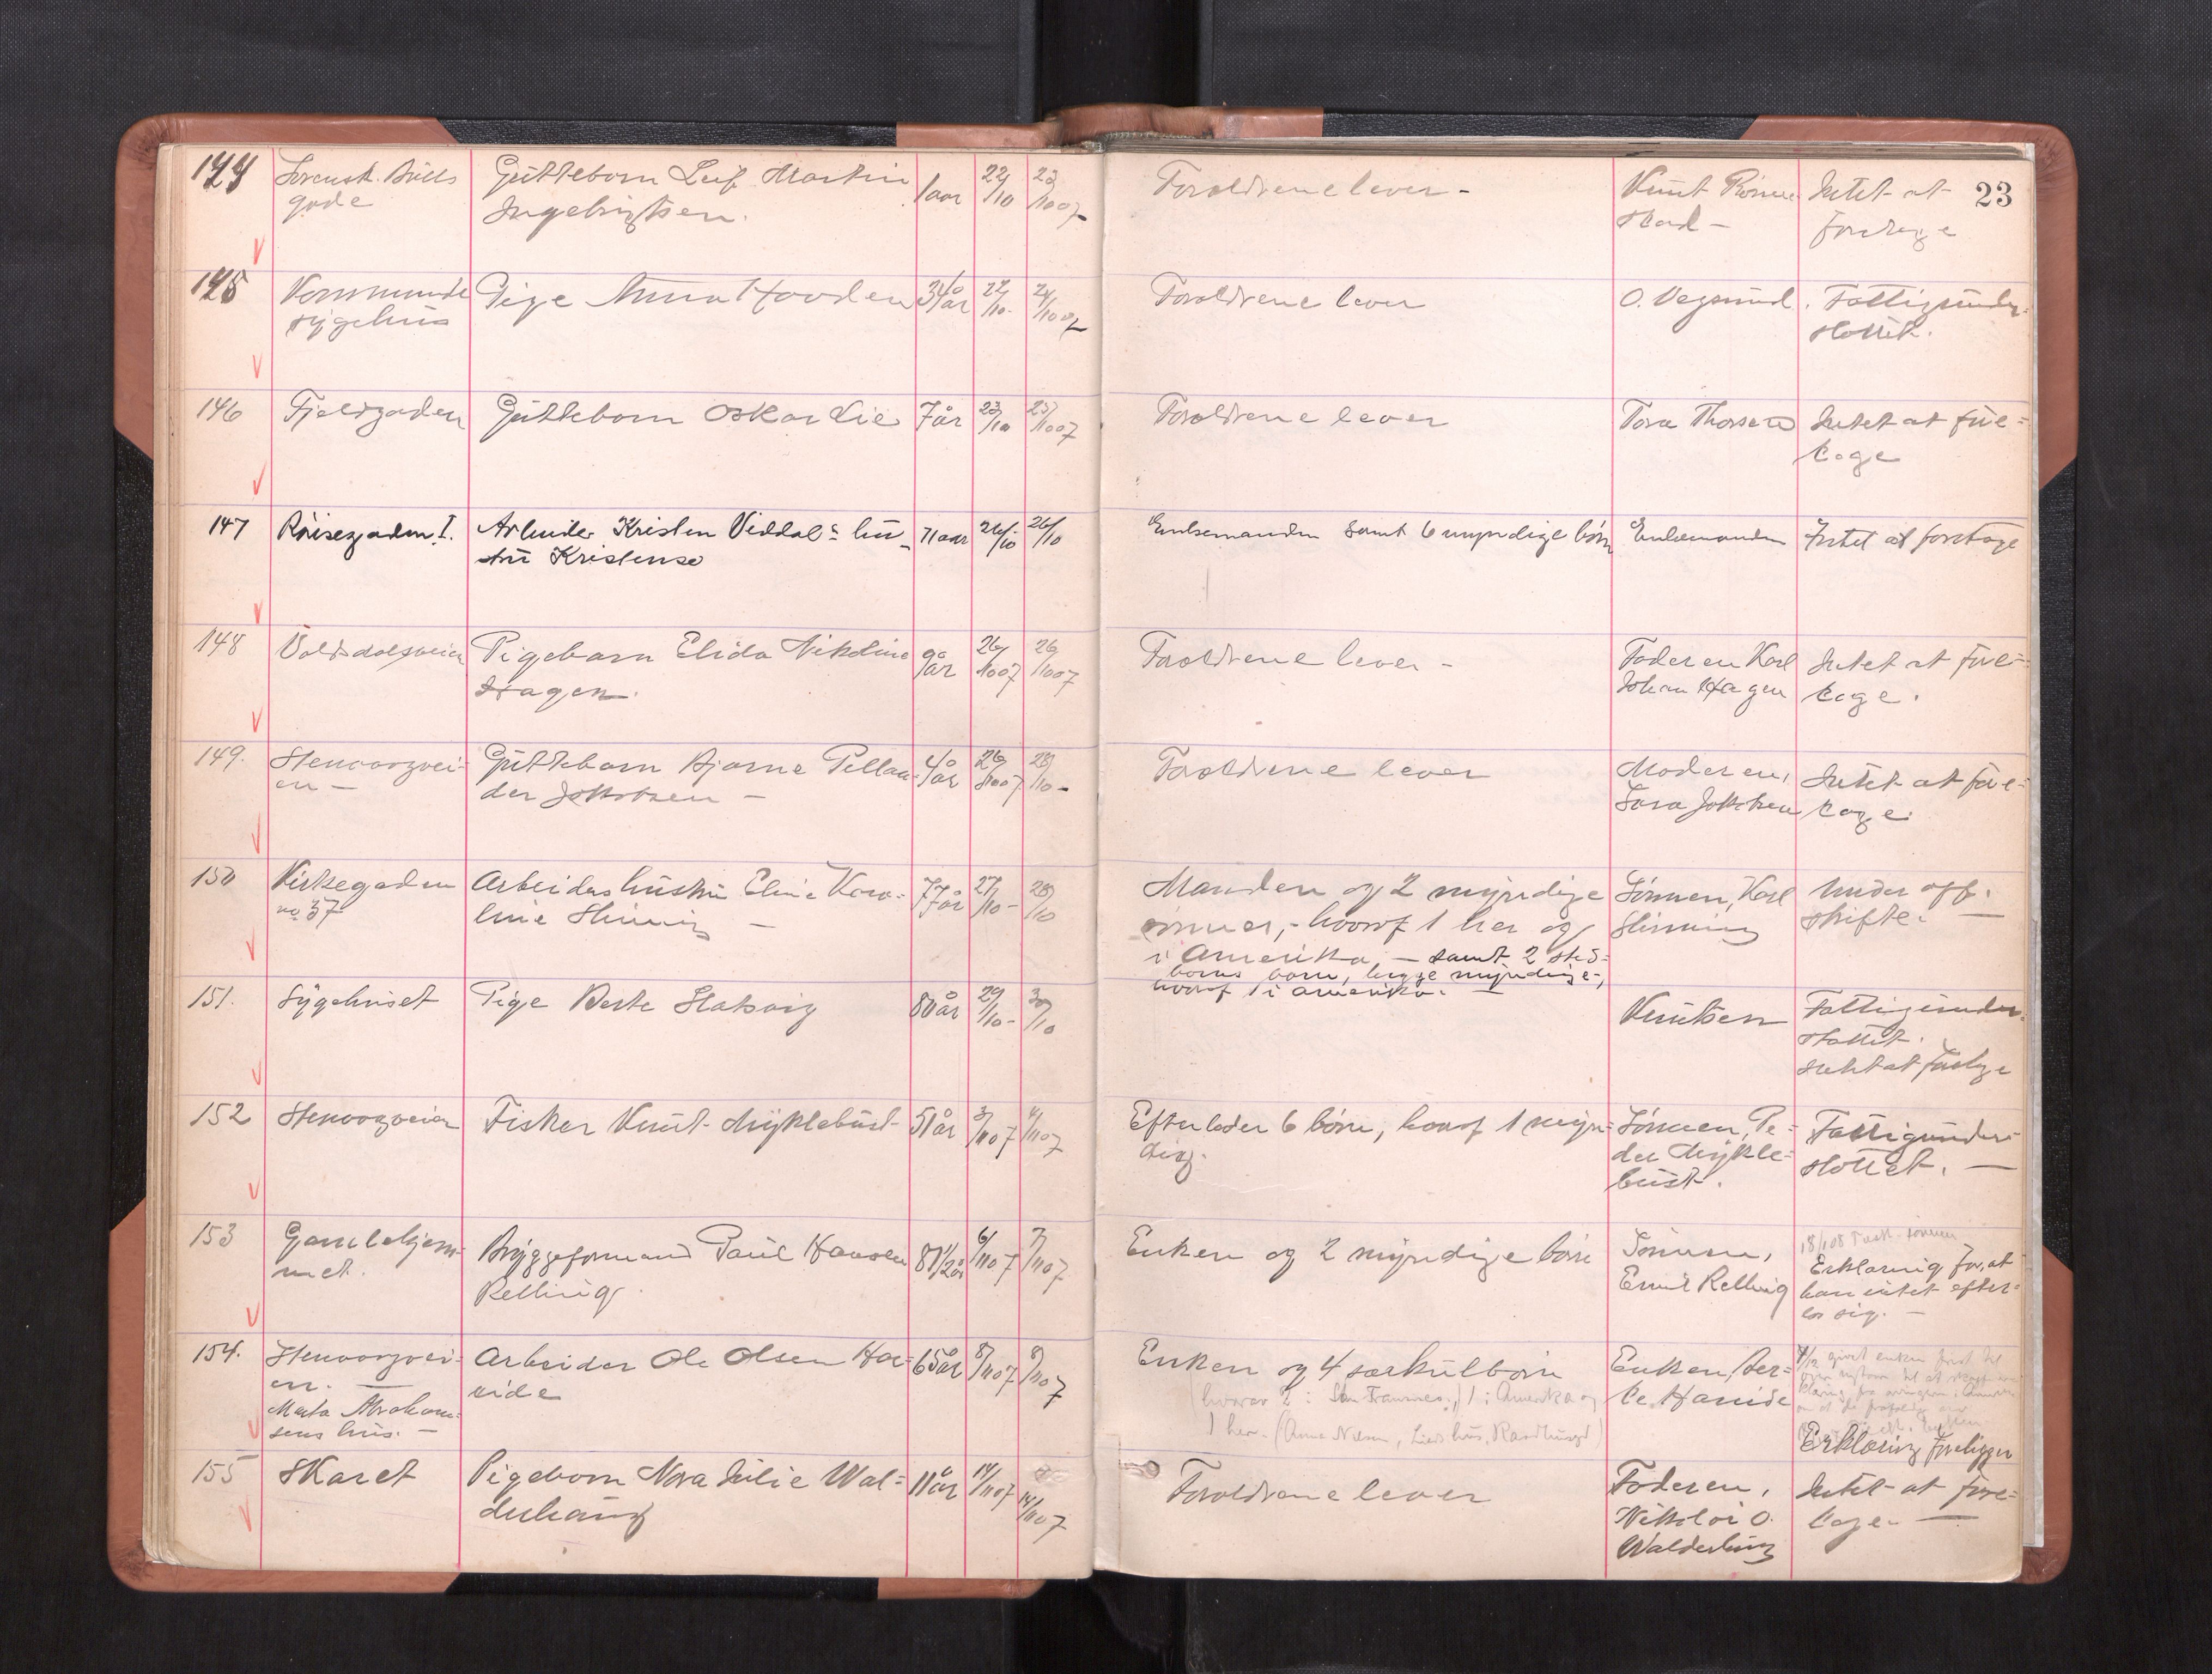 23
144
Guttebarn Leif Martin
Ingebrigtsen.
1 aar
22/10
23/10 07
Forældrene lever -
Knut
stad -
Intet at
foretage
145
Kommunde
sygehus
Pige Anna Hovden
34 år
22/10.
24/10 07
Forældrene lever
O. Vegsund.
Fattigunder-
støttet.
146
Fjeldgaden
Gutteborn Oskar Lie
7 år
23/10
25/10 07
Forældrene lever
Tora Thorsen
Intet at fore=
tage
147
Røisegaden I.
Arbeider Kristen Viddal's hu-
stru Kristense
71 aar
26/10
26/10
Enkemanden samt 6 myndige børn
Enkemanden
Intet at foretage
148
Pigebarn Elida Nikoline
Hagen.
9 år
26/10 07
26/10 07
Forældrene lever -
Faderen Karl
Johan Hagen
Intet at fore=
tage.
149.
Stenvaagvei-
en -
Guttebarn Bjarne
der Jakobsen -
4 år
26/10 07
28/10 -
Forældrene lever
Moderen,
Jakobsen
Intet at fore=
tage.
150
Kirkegaden
no 37
Arbeiders hustru Eline Karo-
line Slinning -
77 år
27/10 -
28/10
Manden og 2 myndige
sønner, - hvoraf 1 her og
i Amerika, - samt 2 sted-
børns børn, begge myndige,
hvoraf 1 i Amerika. -
Sønnen, Karl
Slinning
Under off.
skifte. -
151.
Sygehuset
Pige Berte Slatsvig
80 år
29/10 -
30/10
Knutsen
Fattigunder-
støttet.
Intet at foretage
152
Stenvaagveien
Fisker Knut Myklebust
51 år
3/11 07
4/11 07
Efterlader 6 børn, hvoraf 1 myn=
dig.
Sønnen, Pe-
der Mykle-
bust.
Fattigunder-
støttet. -
153
Gamlehjem-
met.
Bryggeformand Paul Hansen
Relling
81 1/2 år
6/11 07
7/11 07
Enken og 2 myndige børn
Sønnen,
Emil Relling
18/1 08
Erklæring for, at
han intet efter-
lod sig. -
154.
Stenvaagvei-
en. -
Marta Abraham-
sens hus. -
Arbeider Ole Olsen Ha-
vide
65 år
8/11 07
9/11 07
Enken og 4 særkulbørn
hvorav 2 i San Fransisco, 1 i Amerika og
1 her - (Anna Nilsen, Lies hus,
Enken, Ber-
te Havide
givet enken frist til
Erklæring foreligger
155
Skaret
Pigebarn Nora Julie Wal-
derhaug
11 år
14/11 07
14/11 07
Forældrene lever
Faderen,
Nikolai O.
Walderhaug
Intet at fore=
tage. -